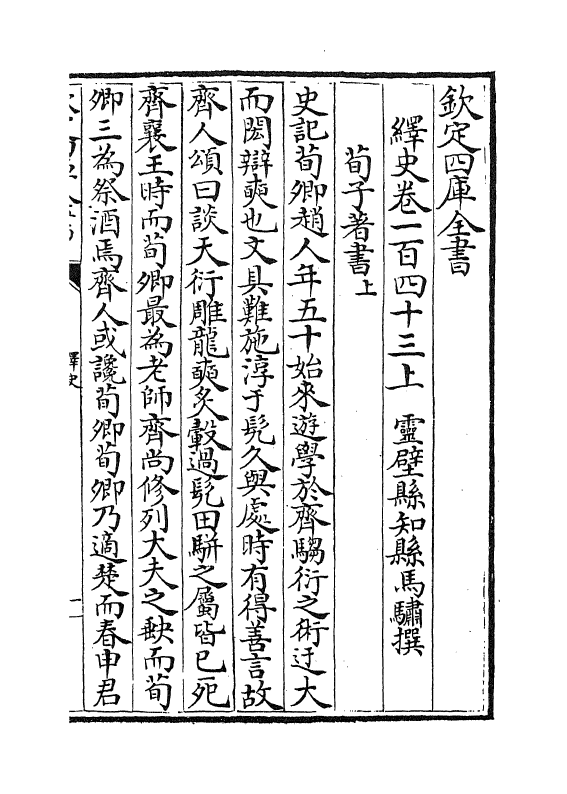 欽定四庫全書
繹史卷一百四十三上　靈壁縣知縣馬驌撰
荀子著書上
史記荀卿趙人年五十始來遊學於齊騶衍之術迂大
而閎辯奭也文具難施淳于髠久與處時有得善言故
齊人頌曰談天衍雕龍奭炙轂過髠田駢之屬皆已死
齊襄王時而荀卿最為老師齊尚修列大夫之缺而荀
卿三為祭酒焉齊人或讒荀卿荀卿乃適楚而春申君
繹史
一